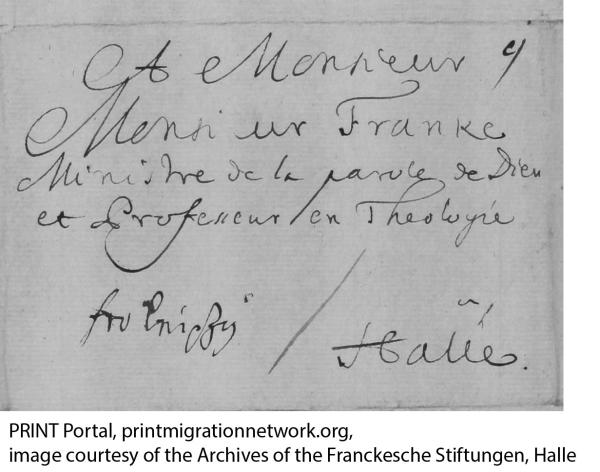 A Monsieur
Monsieur Franke
Ministre de la parole de Dieu
et Professeur en Theologie
Halle.
PRINT Portal, printmigrationnetwork.org,
image courtesy of the Archives of the Franckesche Stiftungen, Halle